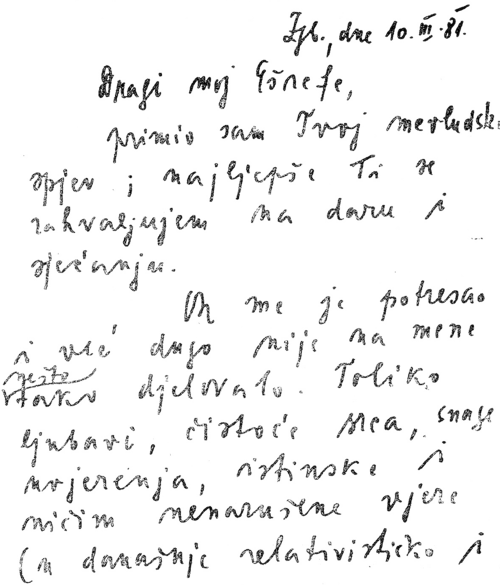 Zgb., dne 10. III. 81.
Dragi moj Ešrefe,
primio sam Tvoj mevludski
spjev i najljepše Ti se
zahvaljujem na daru i
sjećanju.
On me je potresao
i već dugo nije na mene
nješto
tako djelovalo. Toliko
ljubavi, čistoće srca, snage
uvjerenja, istinske i
ničim nenarušene vjere
(u današnje relativističko i